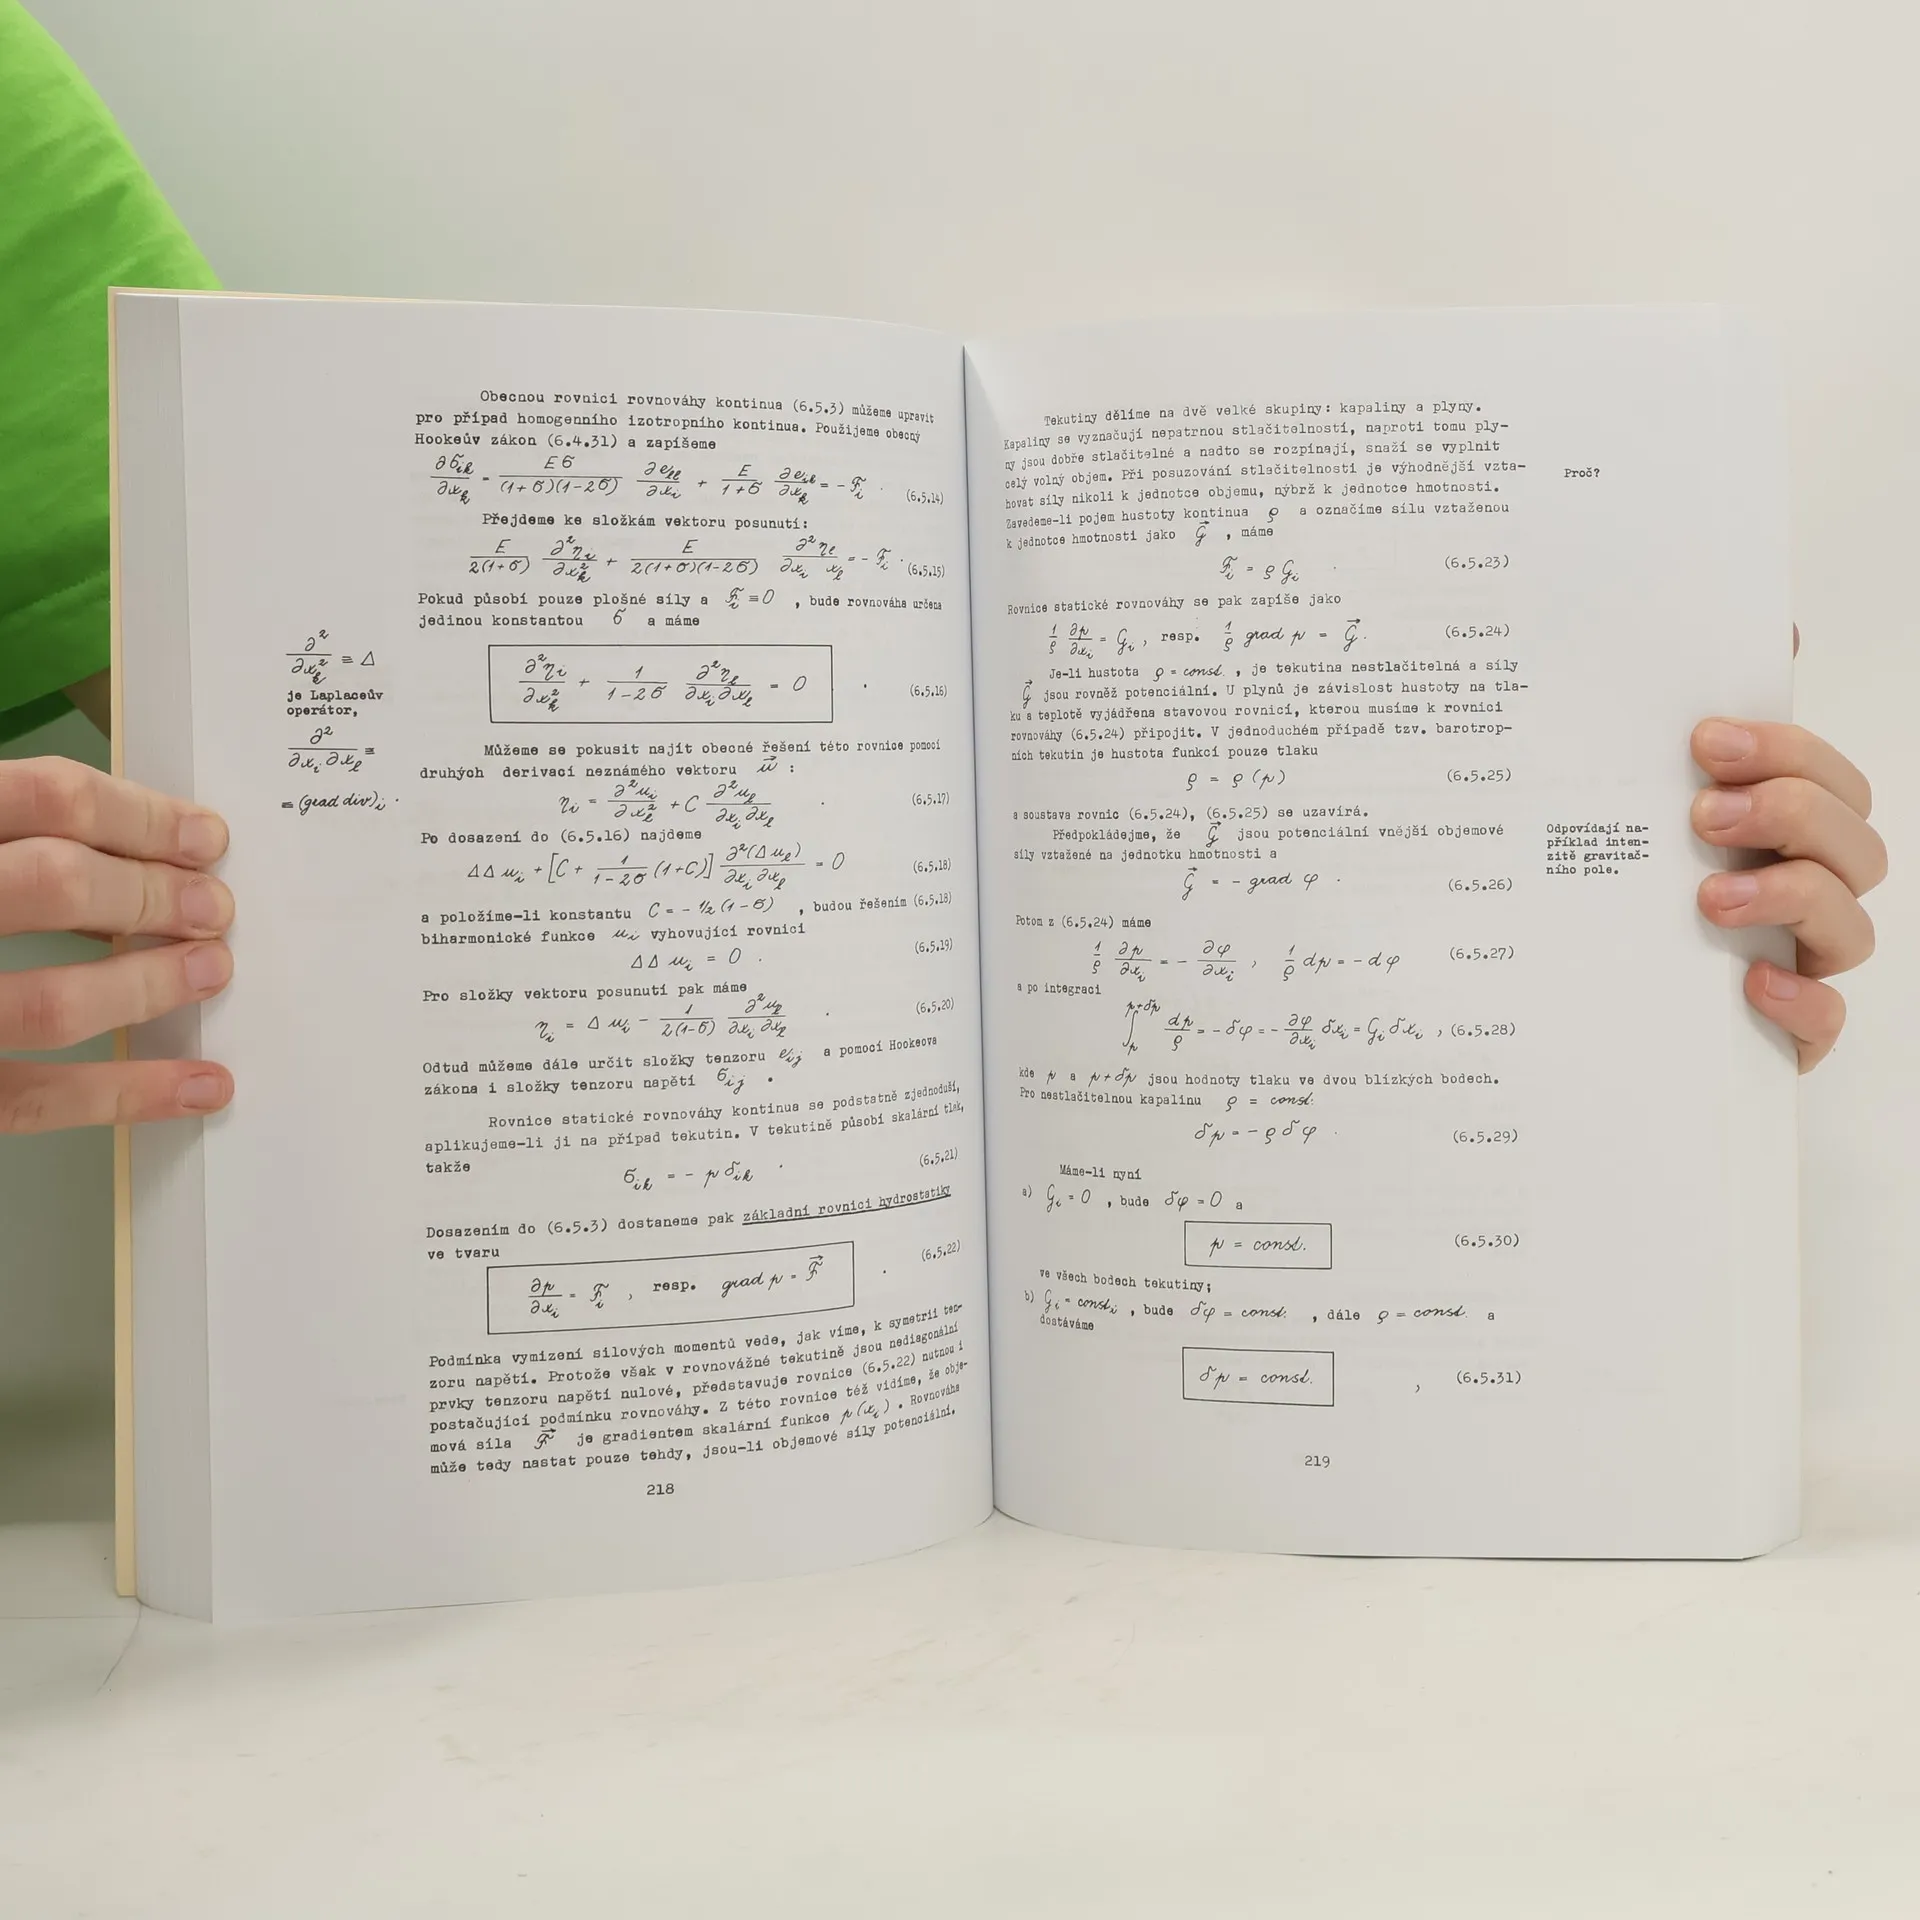 Obecnou rovnici rovnováhy kontinua (6.5.3) můžeme upravit
pro případ homogenního izotropního kontinua. Použijeme obecný
Hookeův zákon (6.4.31) a zapíšeme
∂σik/∂xk = Eσ/((1+σ)(1-2σ)) ∂ell/∂xi + E/(1+σ) ∂eik/∂xk = - Fi . (6.5.14)
Přejdeme ke složkám vektoru posunutí:
E/(2(1+σ)) ∂²ηi/∂xk² + E/(2(1+σ)(1-2σ)) ∂²ηl/∂xi xl = - Fi . (6.5.15)
Pokud působí pouze plošné síly a Fi ≡ 0 , bude rovnováha určena
jedinou konstantou σ a máme
∂²ηi/∂xk² + 1/(1-2σ) ∂²ηl/∂xi∂xl = 0 . (6.5.16)
∂²/∂xk² ≡ Δ
je Laplaceův
operátor,
∂²/∂xi∂xl ≡
≡ (grad div)i .
Můžeme se pokusit najít obecné řešení této rovnice pomocí
druhých derivací neznámého vektoru u⃗ :
ηi = ∂²ui/∂xl² + C ∂²ul/∂xi∂xl . (6.5.17)
Po dosazení do (6.5.16) najdeme
ΔΔ ui + [C + 1/(1-2σ) (1+C)] ∂²(Δul)/∂xi∂xl = 0 (6.5.18)
a položíme-li konstantu C = - 1/2 (1-σ) , budou řešením (6.5.18)
biharmonické funkce ui vyhovující rovnici
ΔΔ ui = 0 . (6.5.19)
Pro složky vektoru posunutí pak máme
ηi = Δ ui - 1/(2(1-σ)) ∂²ul/∂xi∂xl . (6.5.20)
Odtud můžeme dále určit složky tenzoru eij a pomocí Hookeova
zákona i složky tenzoru napětí σij .
Rovnice statické rovnováhy kontinua se podstatně zjednoduší,
aplikujeme-li ji na případ tekutin. V tekutině působí skalární tlak,
takže
σik = - p δik . (6.5.21)
Dosazením do (6.5.3) dostaneme pak základní rovnici hydrostatiky
ve tvaru
∂p/∂xi = Fi , resp. grad p = F⃗ . (6.5.22)
Podmínka vymizení silových momentů vede, jak víme, k symetrii ten-
zoru napětí. Protože však v rovnovážné tekutině jsou nediagonální
prvky tenzoru napětí nulové, představuje rovnice (6.5.22) nutnou i
postačující podmínku rovnováhy. Z této rovnice též vidíme, že obje-
mová síla F⃗ je gradientem skalární funkce p(xi) . Rovnováha
může tedy nastat pouze tehdy, jsou-li objemové síly potenciální.
218
Tekutiny dělíme na dvě velké skupiny: kapaliny a plyny.
Kapaliny se vyznačují nepatrnou stlačitelností, naproti tomu ply-
ny jsou dobře stlačitelné a nadto se rozpínají, snaží se vyplnit
celý volný objem. Při posuzování stlačitelnosti je výhodnější vzta-
hovat síly nikoli k jednotce objemu, nýbrž k jednotce hmotnosti.
Zavedeme-li pojem hustoty kontinua ρ a označíme sílu vztaženou
k jednotce hmotnosti jako G⃗ , máme
Proč?
Fi = ρ Gi . (6.5.23)
Rovnice statické rovnováhy se pak zapíše jako
1/ρ ∂p/∂xi = Gi , resp. 1/ρ grad p = G⃗ . (6.5.24)
Je-li hustota ρ = const. , je tekutina nestlačitelná a síly
G⃗ jsou rovněž potenciální. U plynů je závislost hustoty na tla-
ku a teplotě vyjádřena stavovou rovnicí, kterou musíme k rovnici
rovnováhy (6.5.24) připojit. V jednoduchém případě tzv. barotrop-
ních tekutin je hustota funkcí pouze tlaku
ρ = ρ (p) (6.5.25)
a soustava rovnic (6.5.24), (6.5.25) se uzavírá.
Předpokládejme, že G⃗ jsou potenciální vnější objemové
síly vztažené na jednotku hmotnosti a
Odpovídají na-
příklad inten-
zitě gravitač-
ního pole.
G⃗ = - grad φ . (6.5.26)
Potom z (6.5.24) máme
1/ρ ∂p/∂xi = - ∂φ/∂xi , 1/ρ dp = - dφ (6.5.27)
a po integraci
∫p^(p+δp) dp/ρ = - δφ = - ∂φ/∂xi δxi = Gi δxi , (6.5.28)
kde p a p+δp jsou hodnoty tlaku ve dvou blízkých bodech.
Pro nestlačitelnou kapalinu ρ = const:
δp = - ρ δφ . (6.5.29)
Máme-li nyní
a) Gi = 0 , bude δφ = 0 a
p = const. (6.5.30)
ve všech bodech tekutiny;
b) Gi = consti , bude δφ = const. , dále ρ = const. a
dostáváme
δp = const. , (6.5.31)
219